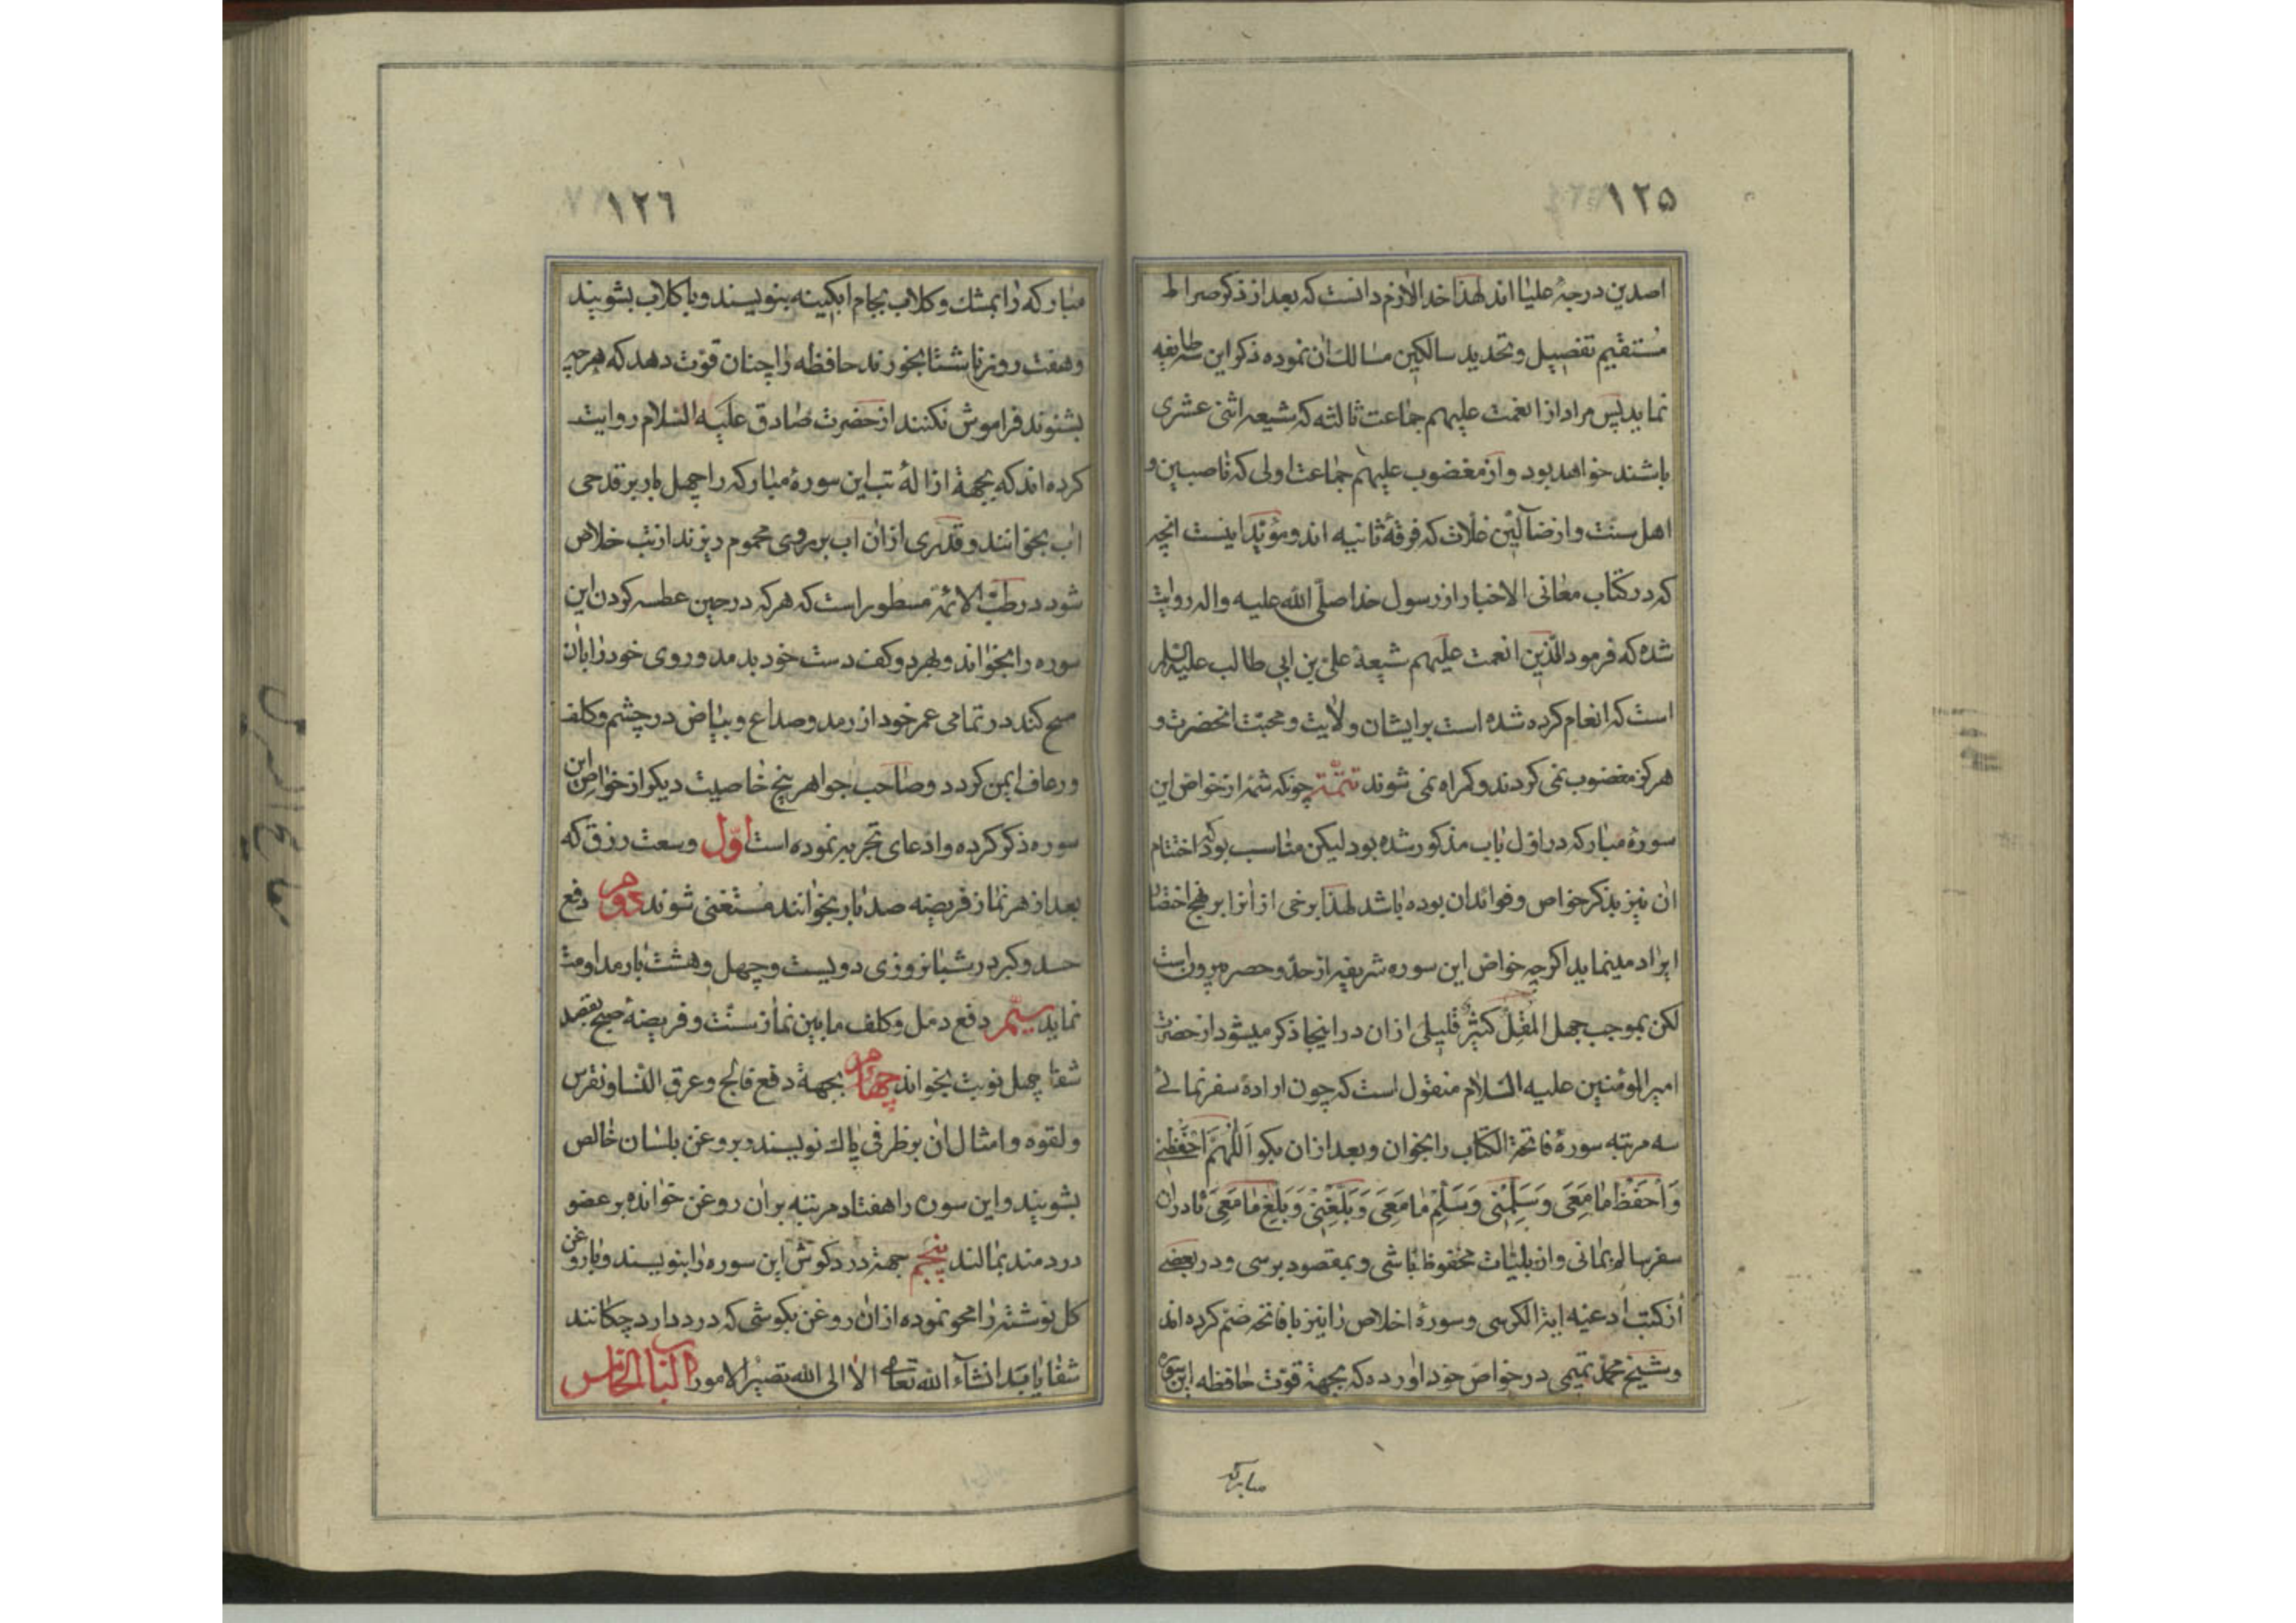 ١٢۵
اصدین درجهٔ علیا اند لهذا خدا لازم دانست که بعد از ذکر صراط
مُستقیم تفصیل و تحدید سالکین مسالک ان نموده ذکر این سه طایفه
نماید پس مراد از انعمت علیهم جماعت ثالثه که شیعه اثنی عشری
باشند خواهد بود و از مغضوب علیهم جماعت اولی که ناصبین و
اهل سنّت و از ضآلّین غلات که فرقهٔ ثانیه اند و مؤیّد اینست انچه
که در کتاب معانی الاخبار از رسول خدا صلّی الله علیه و اله روایت
شده که فرمود الّذین انعمت علیهم شیعة علیّ بن ابی طالب علیه السّلام
است که انعام کرده شده است بر ایشان ولایت و محبّت انحضرت و
هرکز مغضوب نمی کردند و کمراه نمی شوند تتمّه چونکه شمّهٔ از خواصّ این
سورهٔ مبارکه در اوّل باب مذکور شده بود لیکن مناسب بود که اختتام
ان نیز بذکر خواص و فوائد ان بوده باشد لهذا برخی از انرا بر نهج اختصار
ایراد مینماید اکرچه خواصّ این سوره شریفه از حدّ و حصر بیرون است
لکن بموجب جهل المُقِلِّ کثیرٌ قلیلی از ان در اینجا ذکر میشود از حضرت
امیرالمؤمنین علیه السّلام منقول است که چون ارادهٔ سفر نمائے
سه مرتبه سورهٔ فاتحة الکتاب را بخوان و بعد از ان بکو اَللّٰهُمَّ احْفَظْنی
وَاحْفَظْ مٰا مَعِیَ وَسَلِّمْنی وَسَلِّمْ مٰا مَعِیَ وَبَلِّغْنی وَبَلِّغْ مٰا مَعِیَ تا در ان
سفر سالم بمانی و از بلیّات محفوظ باشی و بمقصود برسی و در بعضے
از کتب ادعیه ایة الکرسی و سورهٔ اخلاص را نیز با فاتحه ضمّ کرده اند
و شیخ محمّد تمیمی در خواصّ خود اورده که بجهة قوّت حافظه این سوره
مبارکه
١٢٦
مبارکه را بمشک و کلاب بجام ابکینه بنویسند و با کلاب بشویند
و هفت روز ناشتا بخورند حافظه را چنان قوّت دهد که هرچه
بشنوند فراموش نکنند از حضرت صادق علیه السّلام روایت
کرده اند که بجهة ازالهٔ تب این سورهٔ مبارکه را چهل بار بر قدحی
اب بخوانند و قدری از ان اب بر روی محموم ریزند از تب خلاص
شود در طبّ الائمّه مسطور است که هرکه در حین عطسه کردن این
سوره را بخواند و بهر دو کف دست خود بدمد و روی خود را بان
مسح کند در تمامی عمر خود از رمد و صداع و بیاض در چشم و کلف
و رعاف ایمن کردد و صاحب جواهر پنج خاصیت دیکر از خواص این
سوره ذکر کرده و ادّعای تجربه نموده است اوّل وسعت رزق که
بعد از هر نماز فریضه صد بار بخوانند مُستغنی شوند دوم دفع
حسد و کبر در شبانروزی دویست و چهل و هشت بار مداومت
نماید سیّم دفع دمل و کلف ما بین نماز سنّت و فریضهٔ صبح بقصد
شفا چهل نوبت بخواند چهارم بجهة دفع فالج و عرق النّسا و نقرس
و لقوه و امثال ان بر ظرفی پاک نویسند و بروغن بلسان خالص
بشویند و این سوره را هفتاد مرتبه بر ان روغن خوانده بر عضو
دردمند بمالند پنجم جهة درد کوش این سوره را بنویسند و با روغن
کل نوشته را محو نموده از ان روغن بکوشی که درد دارد چکانند
شفا یابد انشآء الله تعالی الا الی الله تصیر الامور الباب الخامس